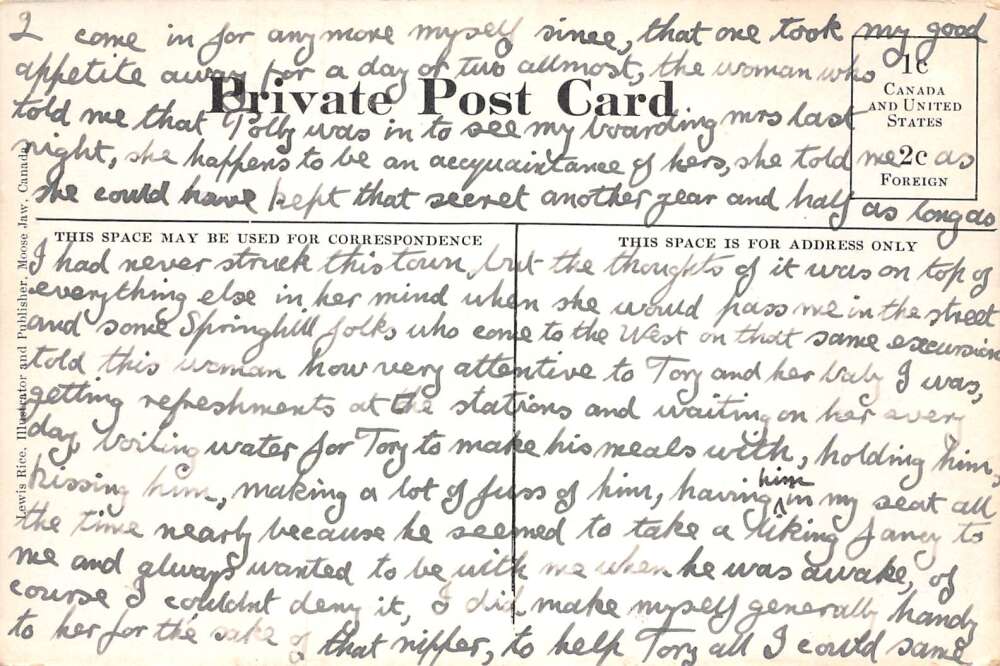 2 come in for anymore myself since, that one took my good
appetite away for a day or two allmost, the woman who
told me that Polly was in to see my boarding mrs last
night, she happens to be an accquaintance of hers, she told me as
she could have kept that secret another year and half as long as
Private Post Card
1c
CANADA
AND UNITED
STATES
2c
FOREIGN
Lewis Rice, Illustrator and Publisher, Moose Jaw, Canada
THIS SPACE MAY BE USED FOR CORRESPONDENCE
THIS SPACE IS FOR ADDRESS ONLY
I had never struck this town, but the thoughts of it was on top of
everything else in her mind when she would pass me in the street
and some Springhill folks who come to the West on that same excursion
told this woman how very attentive to Tory and her baby I was,
getting refreshments at the stations and waiting on her every
day, boiling water for Tory to make his meals with, holding him,
kissing him, making a lot of fuss of him, having him in my seat all
the time nearly because he seemed to take a liking fancy to
me and always wanted to be with me when he was awake, of
course I couldnt deny it, I did make myself generally handy
to her for the sake of that nipper, to help Tory all I could same